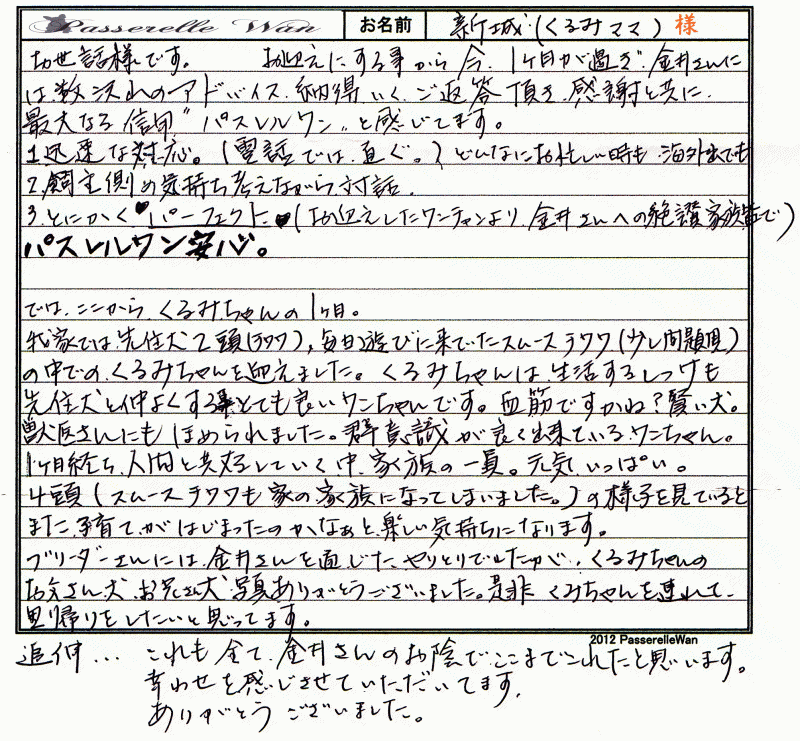 Passerelle Wan お名前 新城(くるみママ) 様
お世話様です。 お迎えにする事から今、1ヶ月が過ぎ、金井さんに
は数決れのアドバイス、納得いくご返答頂き、感謝と共に、
最大なる信用〝パスレルワン〟と感じてます。
1.迅速な対応。(電話では直ぐ。)どんなにお忙しい時も、海外迄でも
2.飼主側の気持ち考えながら対話。
3.とにかく♥パーフェクト♥(お迎えしたワンチャンより、金井さんへの絶讃家族皆で)
パスレルワン安心。
では、ここから、くるみちゃんの1ヶ月。
我家では先住犬2頭(チワワ)、毎日遊びに来ていたスムースチワワ(少し問題児)
の中での、くるみちゃんを迎えました。くるみちゃんは生活するしつけも
先住犬と仲よくする事とても良いワンちゃんです。血筋ですかね?賢い犬。
獣医さんにもほめられました。群意識が良く出来ているワンちゃん。
1ヶ月経ち、人間と共存していく中、家族の一員。元気いっぱい。
4頭(スムースチワワも家の家族になってしまいました。)の様子を見ていると
また、子育てがはじまったのかなぁと、楽しい気持ちになります。
ブリーダーさんには、金井さんを通じた、やりとりでしたが、くるみちゃんの
お父さん犬、お兄さん犬、写真ありがとうございました。是非くみちゃんを連れて、
里帰りをしたいと思ってます。
2012 PasserelleWan
追伸… これも全て、金井さんのお陰でここまでこれたと思います。
幸わせを感じさせていただいてます。
ありがとうございました。